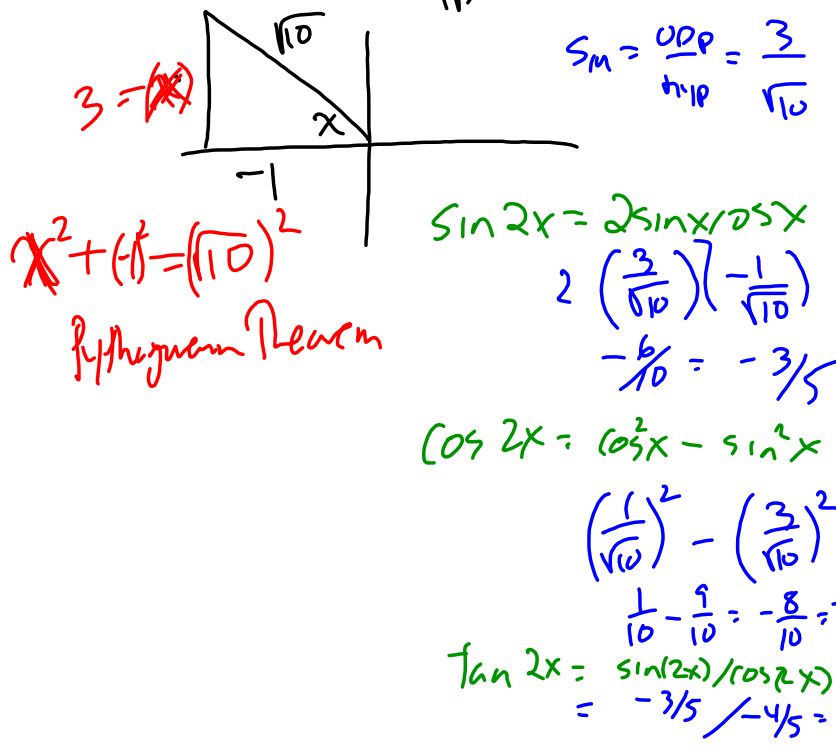 √10
3 =
x
-1
x² + (-1)² = (√10)²
Pythagorean Theorem
sin = opp/hyp = 3/√10
sin 2x = 2sinxcosx
2 (3/√10)(-1/√10)
-6/10 = -3/5
cos 2x = cos²x - sin²x
(1/√10)² - (3/√10)²
1/10 - 9/10 = -8/10 =
Tan 2x = sin(2x)/cos(2x)
= -3/5 / -4/5 =